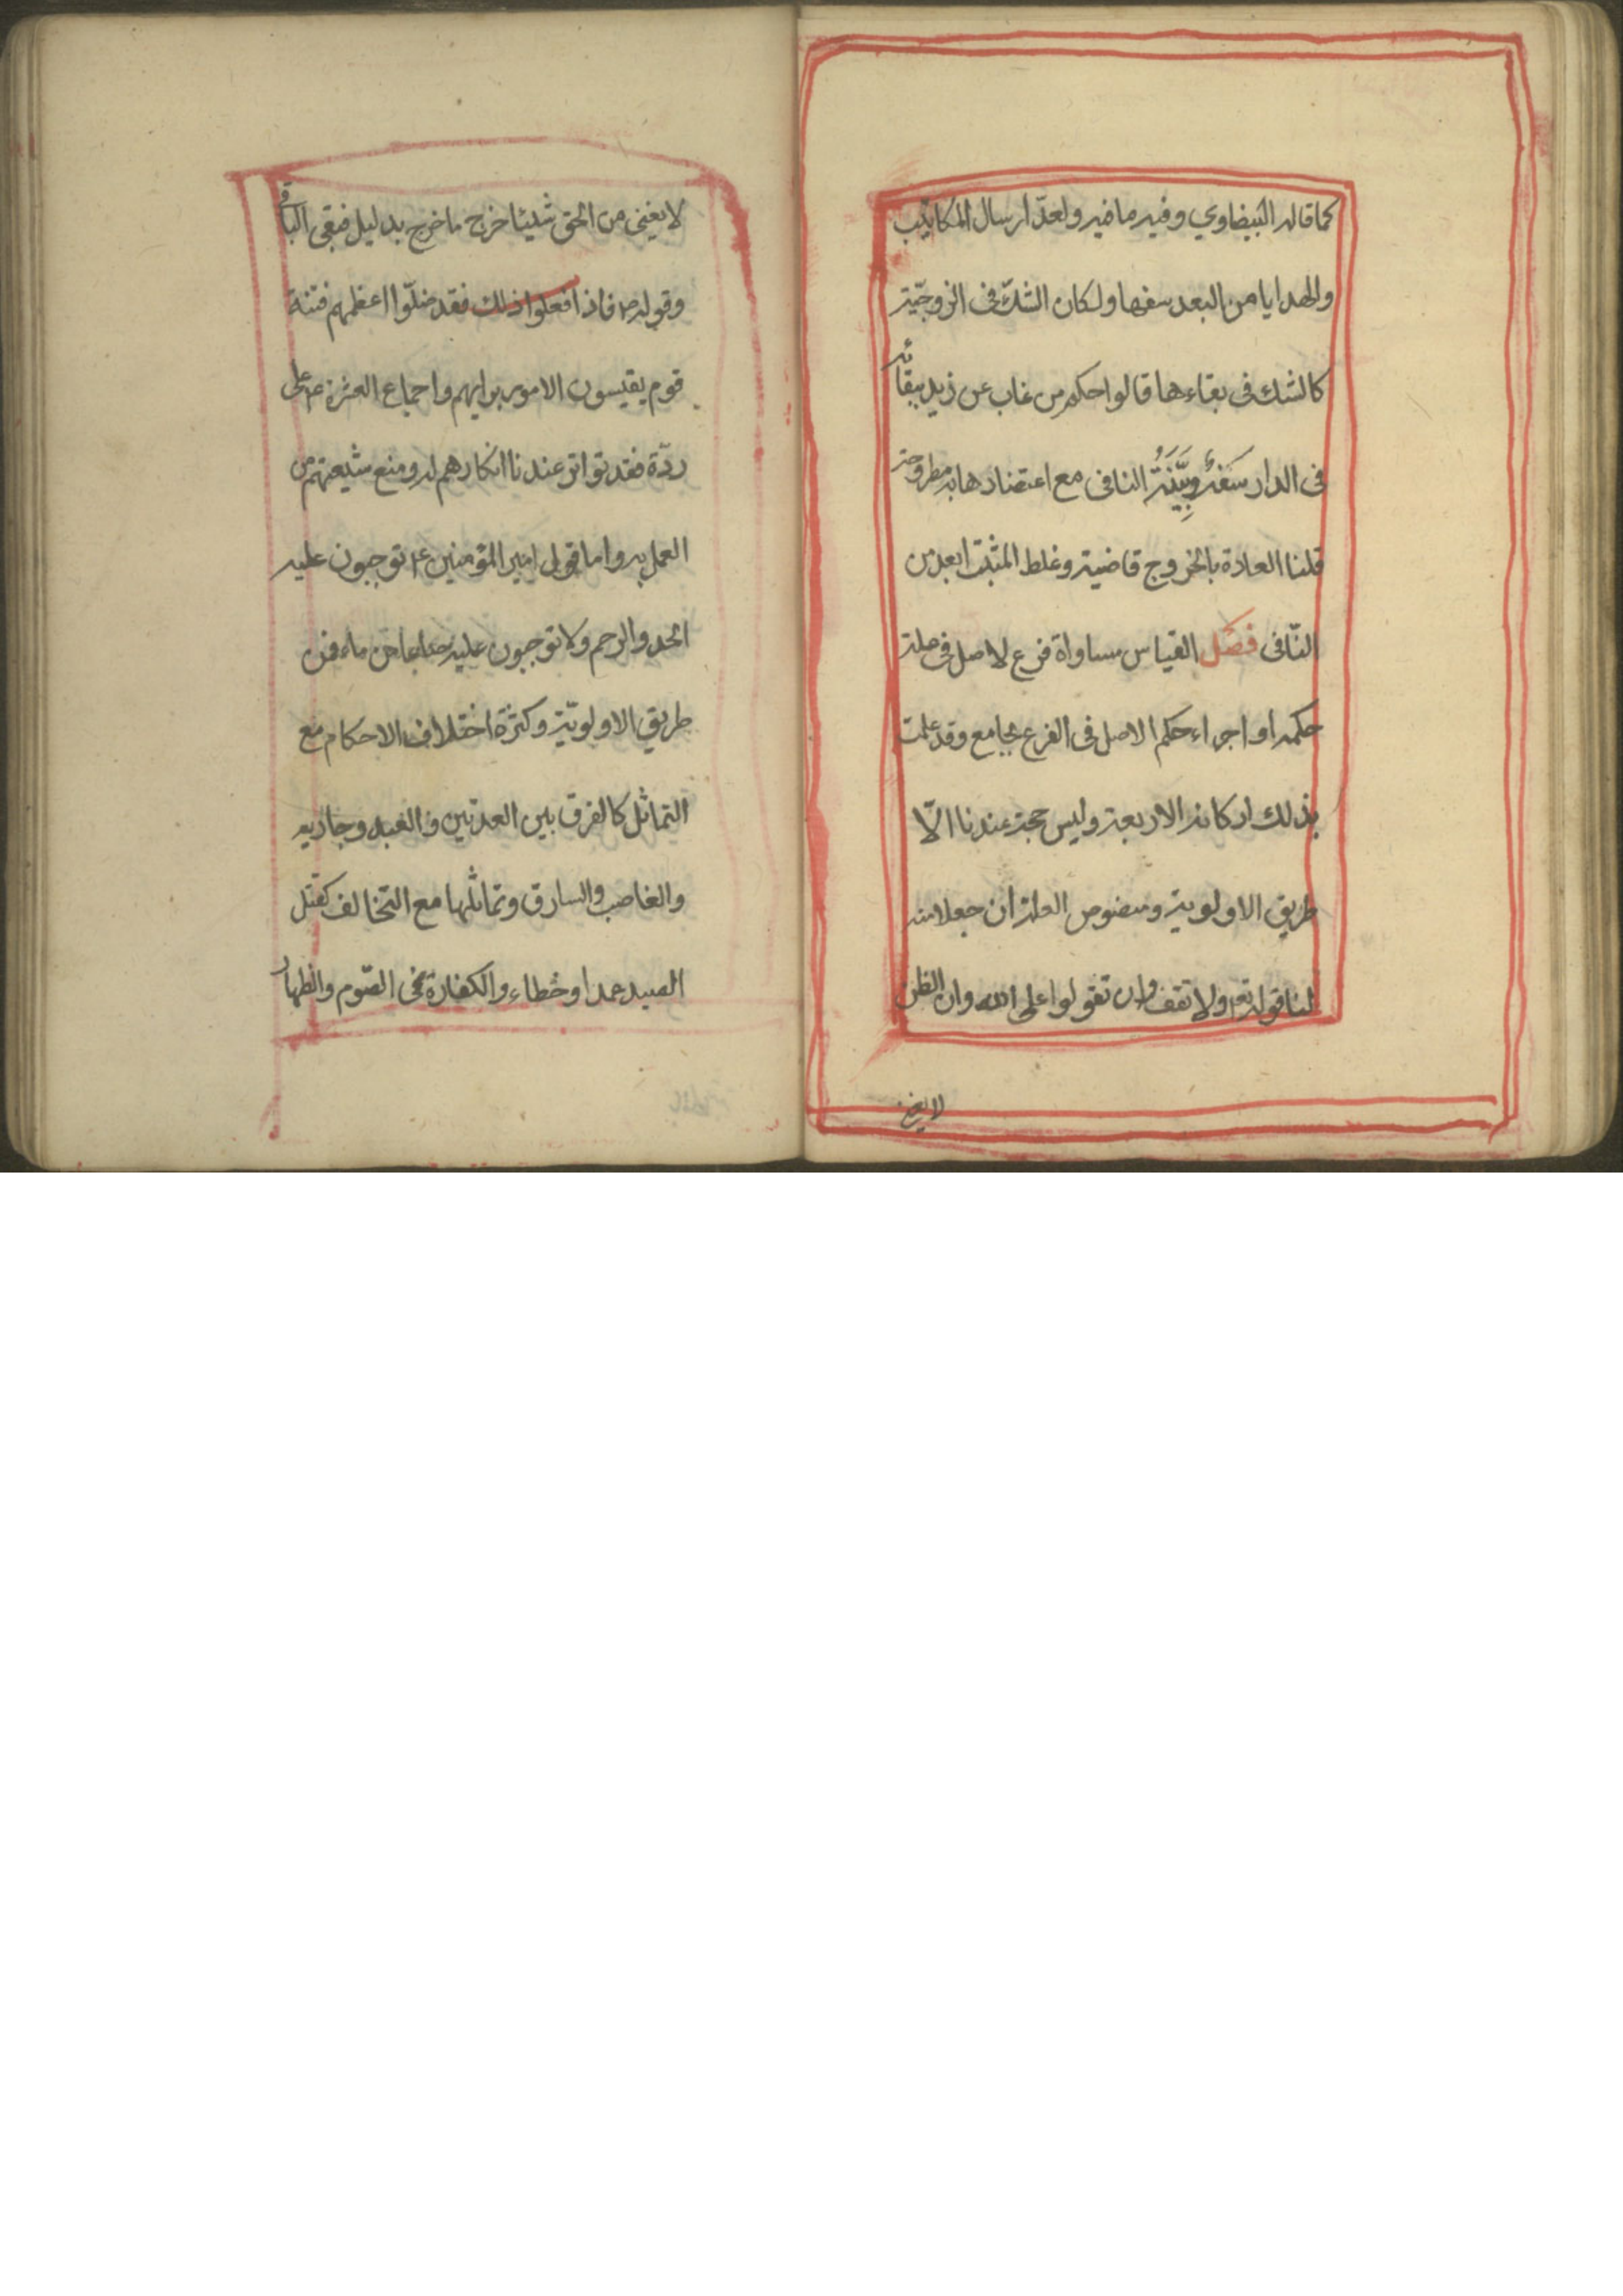 كما قاله البيضاوي وفيه ما فيه ولعدّ ارسال المكاتيب
والهدايا من البعد سفها ولكان الشكّ فى الزوجيّة
كالشك فى بقاءها قالوا حكم من غاب عن زيد ببقائه
فى الدار سَفَهٌ وبَيِّنَةُ النافى مع اعتضادها به مطروحة
قلنا العادة بالخروج قاضية وغلط المثبت ابعد من
النّافى فصل القياس مساواة فرع لاصل فى علة
حكمه او اجراء حكم الاصل فى الفرع بجامع وقد علمت
بذلك اركانه الاربعة وليس حجة عندنا الّا
طريق الاولوية ومنصوص العلة ان جعلا منه
لنا قوله تع ولا تقف وان تقولوا على الله وان الظن
لا يغنى
لا يغنى من الحق شيئا خرج ما خرج بدليل فبقى الباقى
وقوله ص فاذا فعلوا ذلك فقد ضلّوا اعظمهم فتنة
قوم يقيسون الامور برايهم واجماع العترة ع على
ردّه فقد تواتر عندنا انكارهم له ومنع شيعتهم من
العمل به واما قول امير المؤمنين ع اتوجبون عليه
الحد والرجم ولا توجبون عليه صاعا من ماء فمن
طريق الاولويّة وكثرة اختلاف الاحكام مع
التماثل كالفرق بين العدتين والعبد وجاريه
والغاصب والسارق وتماثلها مع التخالف كقتل
الصيد عمدا وخطاء والكفارة فى الصّوم والظهار